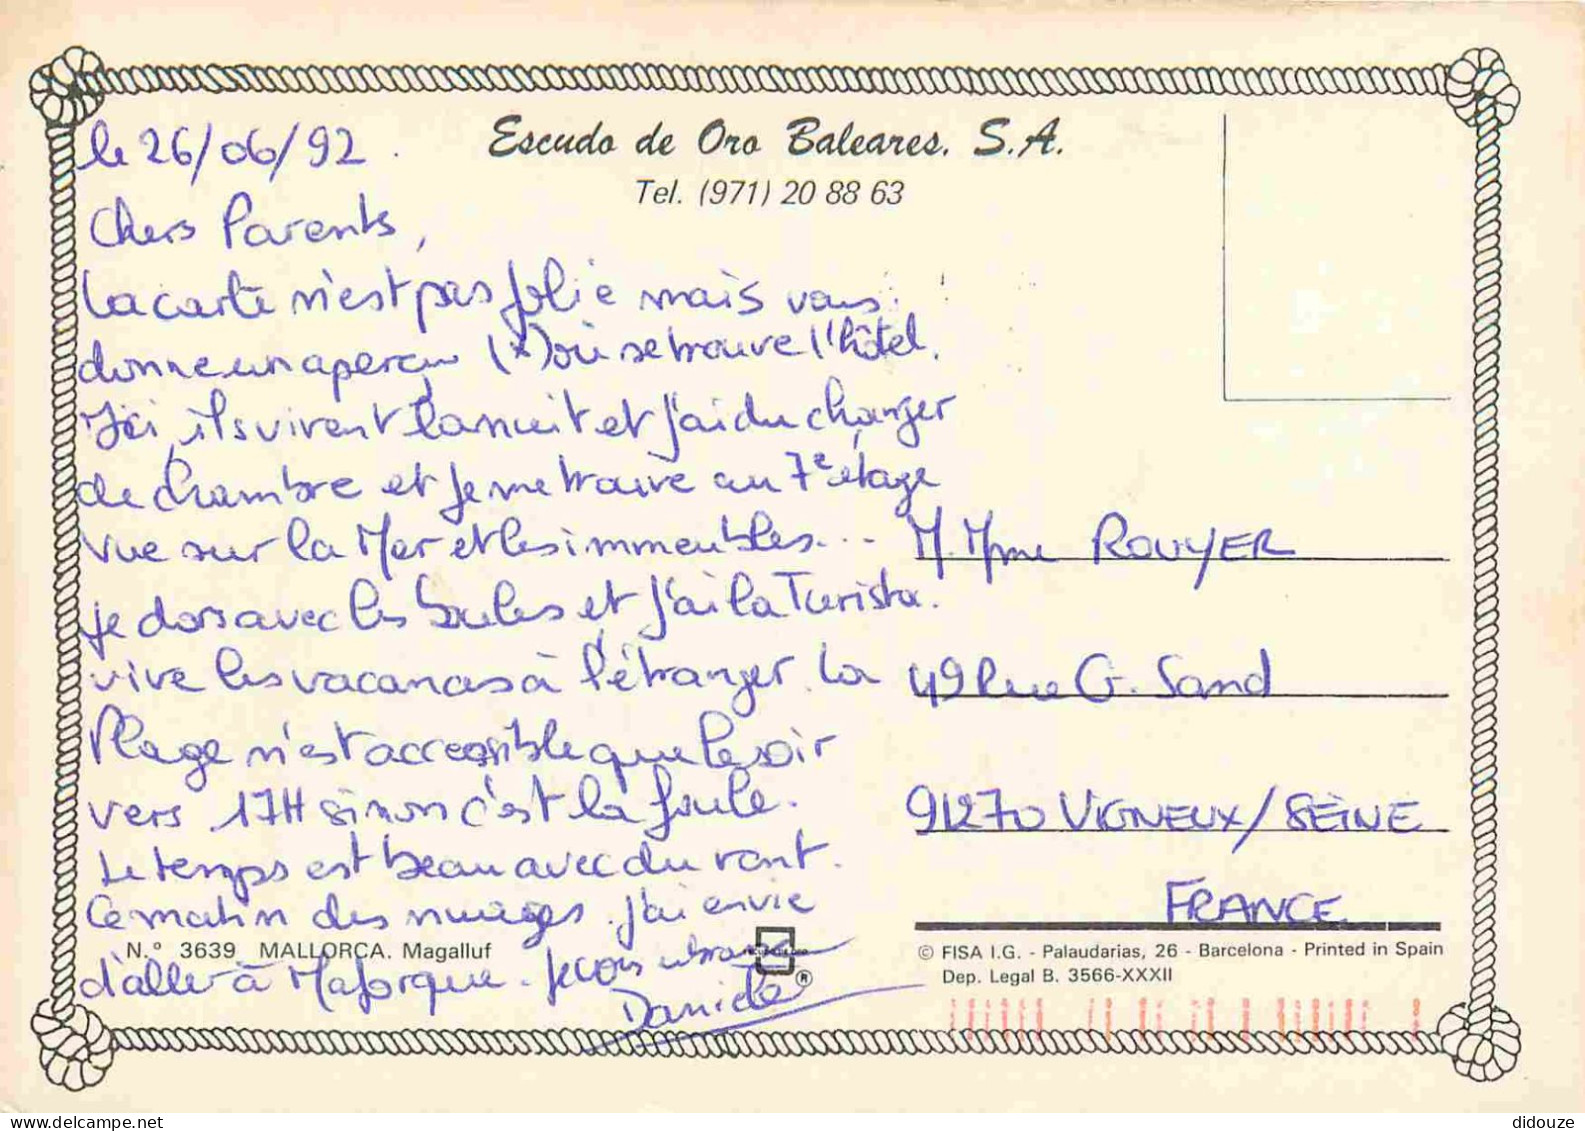 le 26/06/92.
Escudo de Oro Baleares. S.A.
Tel. (971) 20 88 63
Chers Parents,
La carte n'est pas jolie mais vous
donne un aperçu (*) où se trouve l'hôtel.
Ici, ils vivent la nuit et j'ai du changer
de chambre et je me trouve au 7e étage
vue sur la Mer et les immeubles...
je dors avec les boules et j'ai la Turista.
vive les vacances à l'étranger. La
Plage n'est accessible que le soir
vers 17H sinon c'est la foule.
Le temps est beau avec du vent.
Ce matin des nuages. j'ai envie
d'aller à Majorque. Je vous embrasse
Danièle
M. Mme ROUYER
49 Rue G. Sand
91270 VIGNEUX/SEINE
FRANCE
N.º 3639 MALLORCA. Magalluf
®
© FISA I.G. - Palaudarias, 26 - Barcelona - Printed in Spain
Dep. Legal B. 3566-XXXII
didouze